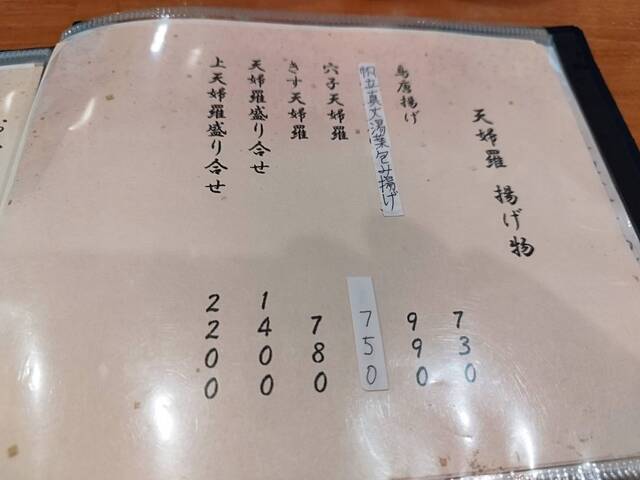 天婦羅 揚げ物
鳥唐揚げ
帆立真丈湯葉包み揚げ
穴子天婦羅
きす天婦羅
天婦羅盛り合せ
上天婦羅盛り合せ
730
990
750
780
1400
2200